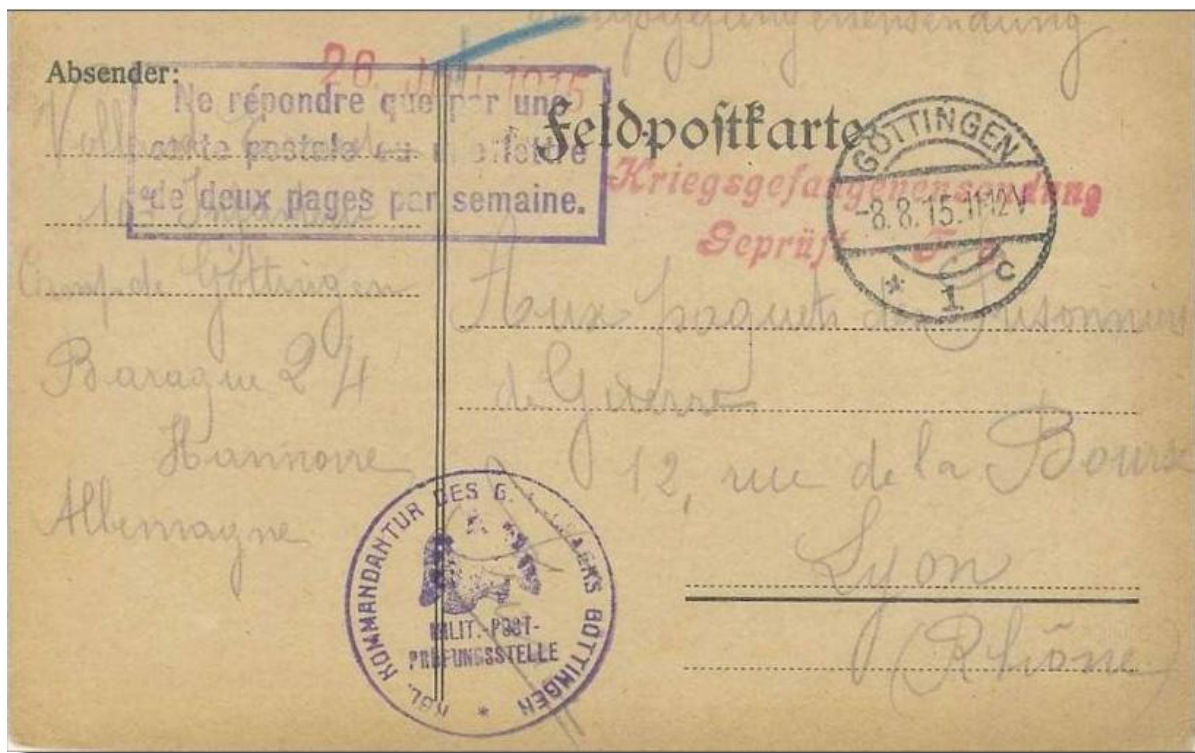 Kriegsgefangenensendung
Absender:
26. Juli 1915
Ne répondre que par une
carte postale ou une lettre
de deux pages par semaine.
Feldpostkarte
Kriegsgefangenensendung
Geprüft
GÖTTINGEN
-8.8.15.11-12V
* 1 c
Infanterie
Camp de Göttingen
Baraque 24
Hannovre
Allemagne
Aux paquets des Prisonniers
de Guerre
12, rue de la Bourse
Lyon
(Rhône)
KGL. KOMMANDANTUR DES G. LAGERS GÖTTINGEN *
MILIT.-POST-
PRÜFUNGSSTELLE